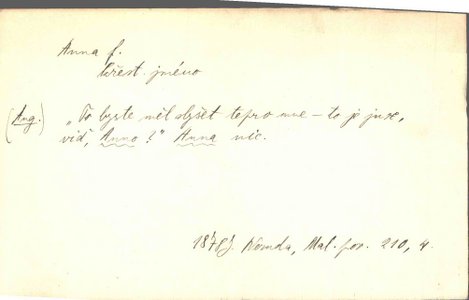 Anna f.
křest. jméno
(Aug.) „To byste měl slyšet teprv mne – to je juxe,
viď, Anno?" Anna nic.
187 Neruda, Mal. pov. 210, 4.